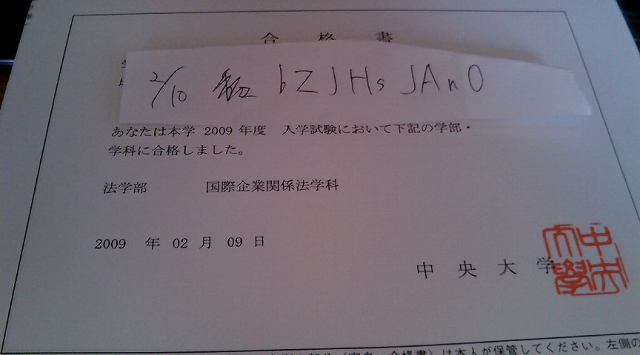 合格書
2/10 bZJHsJAnO
あなたは本学 2009 年度 入学試験において下記の学部・
学科に合格しました。
法学部 国際企業関係法学科
2009 年 02 月 09 日
中央大学
中央大學
(宛名、合格書)は本人が保管してください。左側の